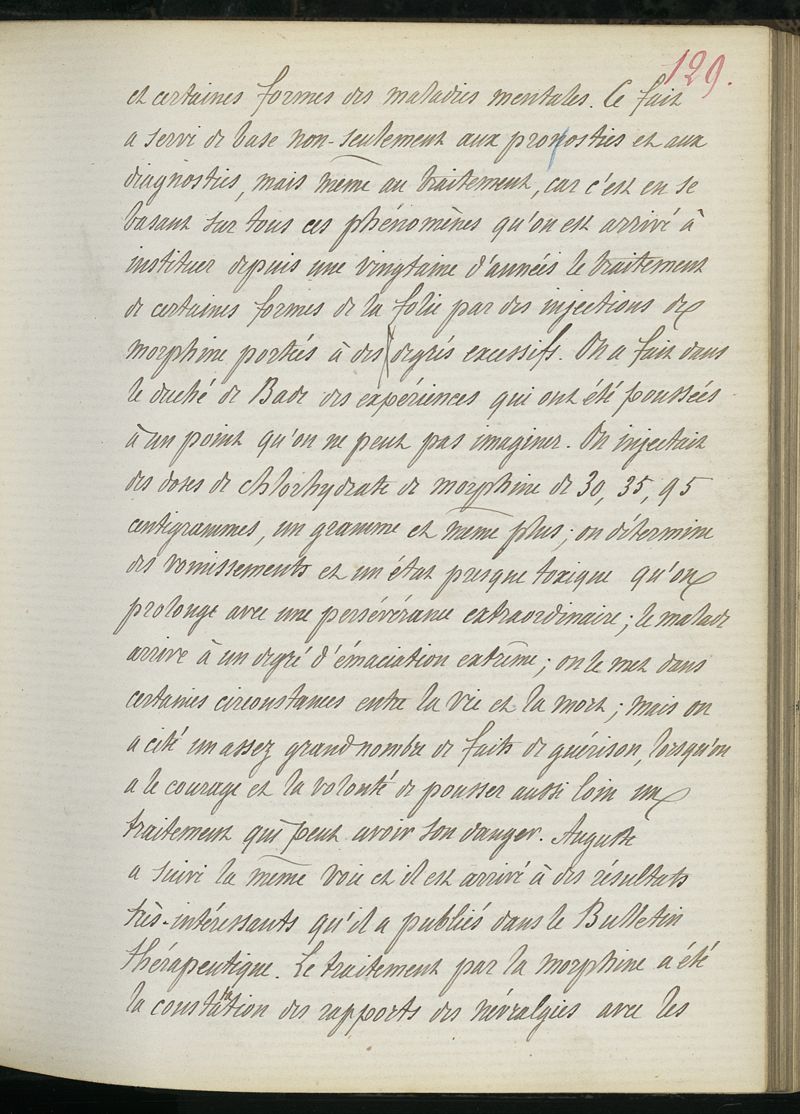 129.
et certaines formes des maladies mentales. Ce fait
a servi de base non-seulement aux pronostics et aux
diagnostics, mais même au traitement, car c'est en se
basant sur tous ces phénomènes qu'on est arrivé à
instituer depuis une vingtaine d'années le traitement
de certaines formes de la folie par des injections de
morphine portées à des degrés excessifs. On a fait dans
le duché de Bade des expériences qui ont été poussées
à un point qu'on ne peut pas imaginer. On injectait
des doses de chlorhydrate de morphine de 30, 35, 95
centigrammes, un gramme et même plus; on détermine
des vomissements et un état presque toxique qu'on
prolonge avec une persévérance extraordinaire; le malade
arrive à un degré d'émaciation extrême; on le met dans
certaines circonstances entre la vie et la mort; mais on
a cité un assez grand nombre de faits de guérison, lorsqu'on
a le courage et la volonté de pousser aussi loin un
traitement qui peut avoir son danger. Auguste
a suivi la même voie et il est arrivé à des résultats
très-intéressants qu'il a publiés dans le Bulletin
thérapeutique. Le traitement par la morphine a été
la constatation des rapports des névralgies avec les